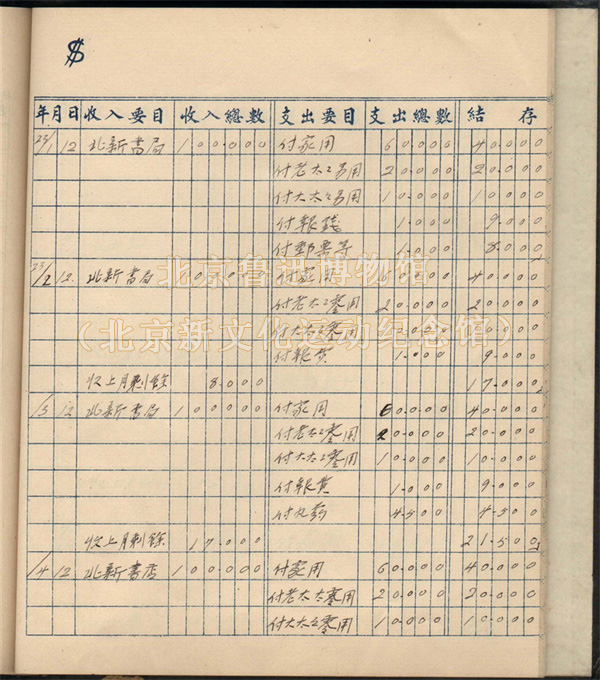 $
年月日 收入要目 收入總數 支出要目 支出總數 結存
23/1 12 北新書局 100.000 付家用 60.000 40.000
付老太太另用 20.000 20.000
付大太太另用 10.000 10.000
付報錢 1.000 9.000
付郵票等 1.000 8.000
23/2 12 北新書局 100.000 付家用 60.000 40.000
付老太太零用 20.000 20.000
付大太太零用 10.000 10.000
付報費 1.000 9.000
收上月剩餘 8.000 17.000
/3 12 北新書局 100.000 付家用 60.000 40.000
付老太太零用 20.000 20.000
付大太太零用 10.000 10.000
付報費 1.000 9.000
付丸藥 4.500 4.500
收上月剩餘 17.000 21.500
/4 12 北新書店 100.000 付家用 60.000 40.000
付老太太零用 20.000 20.000
付大太太零用 10.000 10.000
北京鲁迅博物馆
(北京新文化运动纪念馆)